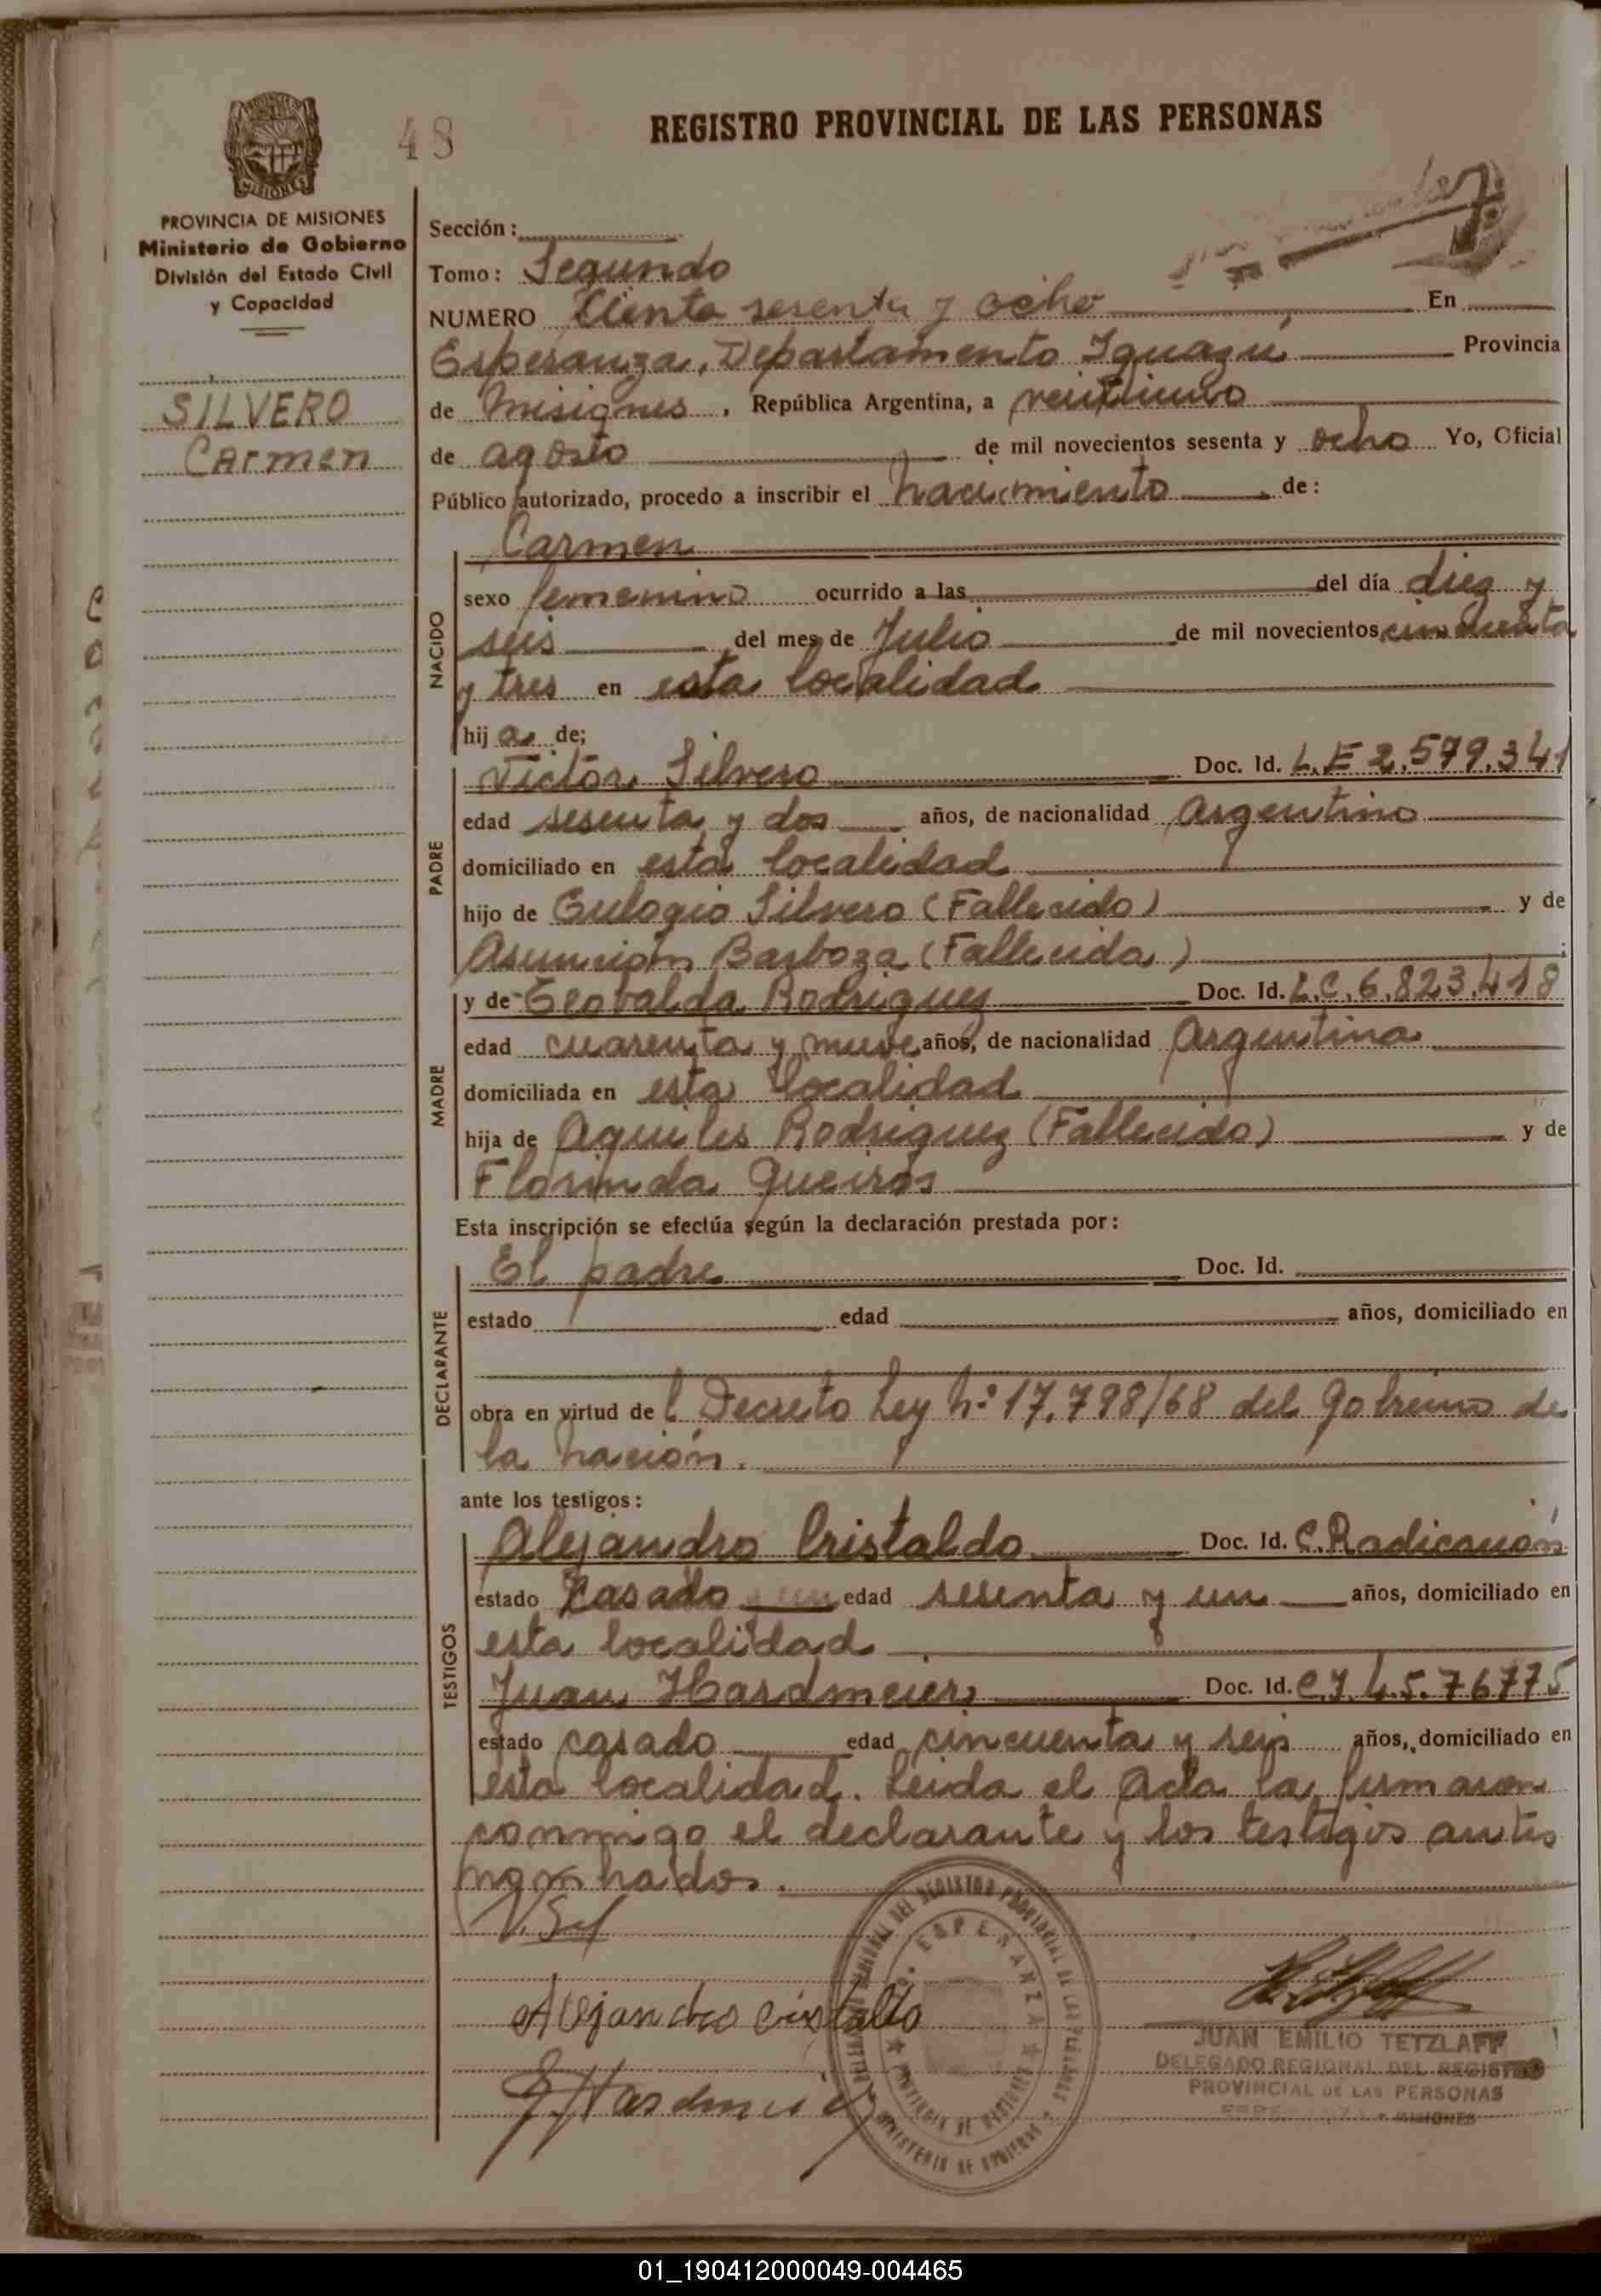 48
REGISTRO PROVINCIAL DE LAS PERSONAS
PROVINCIA DE MISIONES
Ministerio de Gobierno
División del Estado Civil
y Capacidad
SILVERO
Carmen
Sección:
Tomo: Segundo
NUMERO Ciento sesenta y ocho En
Esperanza, Departamento Iguazú Provincia
de Misiones, República Argentina, a veintiuno
de agosto de mil novecientos sesenta y ocho Yo, Oficial
Público autorizado, procedo a inscribir el nacimiento de:
Carmen
NACIDO
sexo femenino ocurrido a las del día diez y
seis del mes de Julio de mil novecientos cincuenta
y tres en esta localidad
hija de;
PADRE
Victor Silvero Doc. Id. L.E 2.579.341
edad sesenta y dos años, de nacionalidad Argentino
domiciliado en esta localidad
hijo de Eulogio Silvero (Fallecido) y de
Asunción Barboza (Fallecida)
MADRE
y de Teobalda Rodriguez Doc. Id. L.C. 6.823.418
edad cuarenta y nueve años, de nacionalidad Argentina
domiciliada en esta localidad
hija de Aquiles Rodriguez (Fallecido) y de
Florinda Queirós
Esta inscripción se efectúa según la declaración prestada por:
DECLARANTE
El padre Doc. Id.
estado edad años, domiciliado en
obra en virtud de l Decreto Ley Nº 17.798/68 del Gobierno de
la Nación.
ante los testigos:
TESTIGOS
Alejandro Cristaldo Doc. Id. C. Radicación
estado Casado edad sesenta y un años, domiciliado en
esta localidad
Juan Hardmeier Doc. Id. C.I 4.5.76775
estado casado edad cincuenta y seis años, domiciliado en
esta localidad. Leida el Acta la firmaron
conmigo el declarante y los testigos antes
nombrados.
Alejandro Cristaldo
Hardmeier
ESPERANZA
PROVINCIA DE MISIONES
MINISTERIO DE GOBIERNO
JUAN EMILIO TETZLAFF
DELEGADO REGIONAL DEL REGISTRO
PROVINCIAL DE LAS PERSONAS
ESPERANZA - MISIONES
01_190412000049-004465